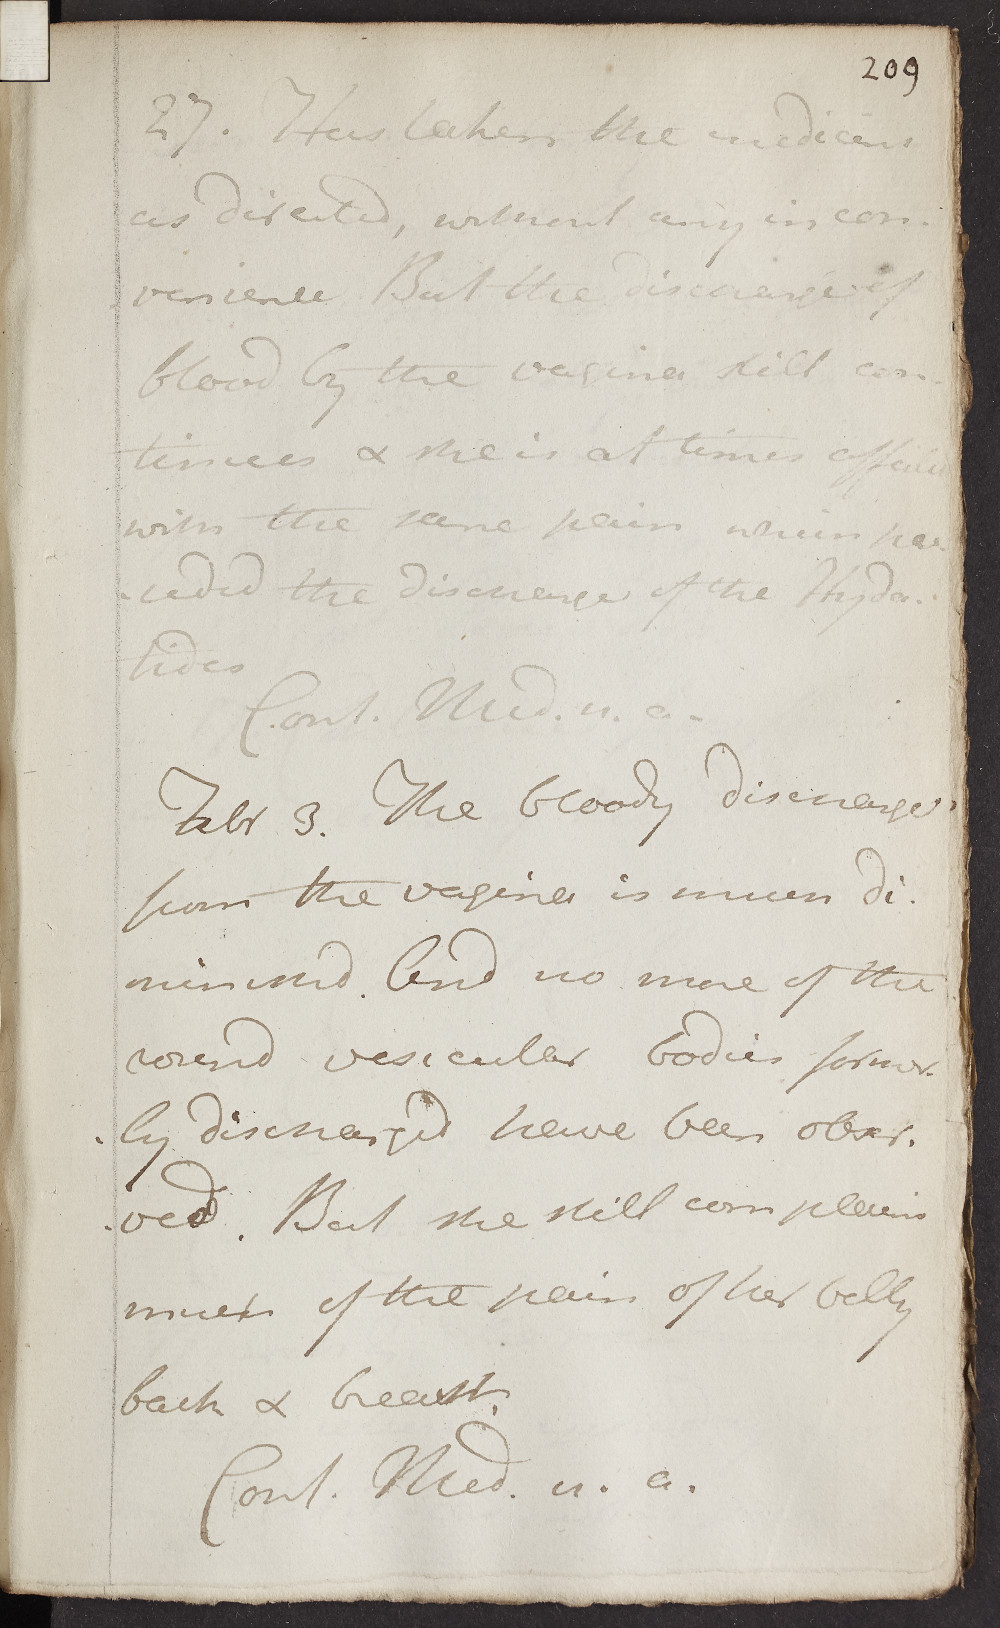 209
27. Has taken the medicines
as directed, without any incon-
venience But the discharge of
blood by the vagina still con-
tinues & she is at times affected
with the same pain which pre-
-ceded the discharge of the Hyda-
tides
Cont. Med. u. a.
Febr 3. The bloody discharge
from the vagina is much di-
minished. And no more of the
round vesicular bodies former-
-ly discharged have been obser-
-ved. But she still complains
much of the pain of her belly
back & breast.
Cont. Med. u. a.